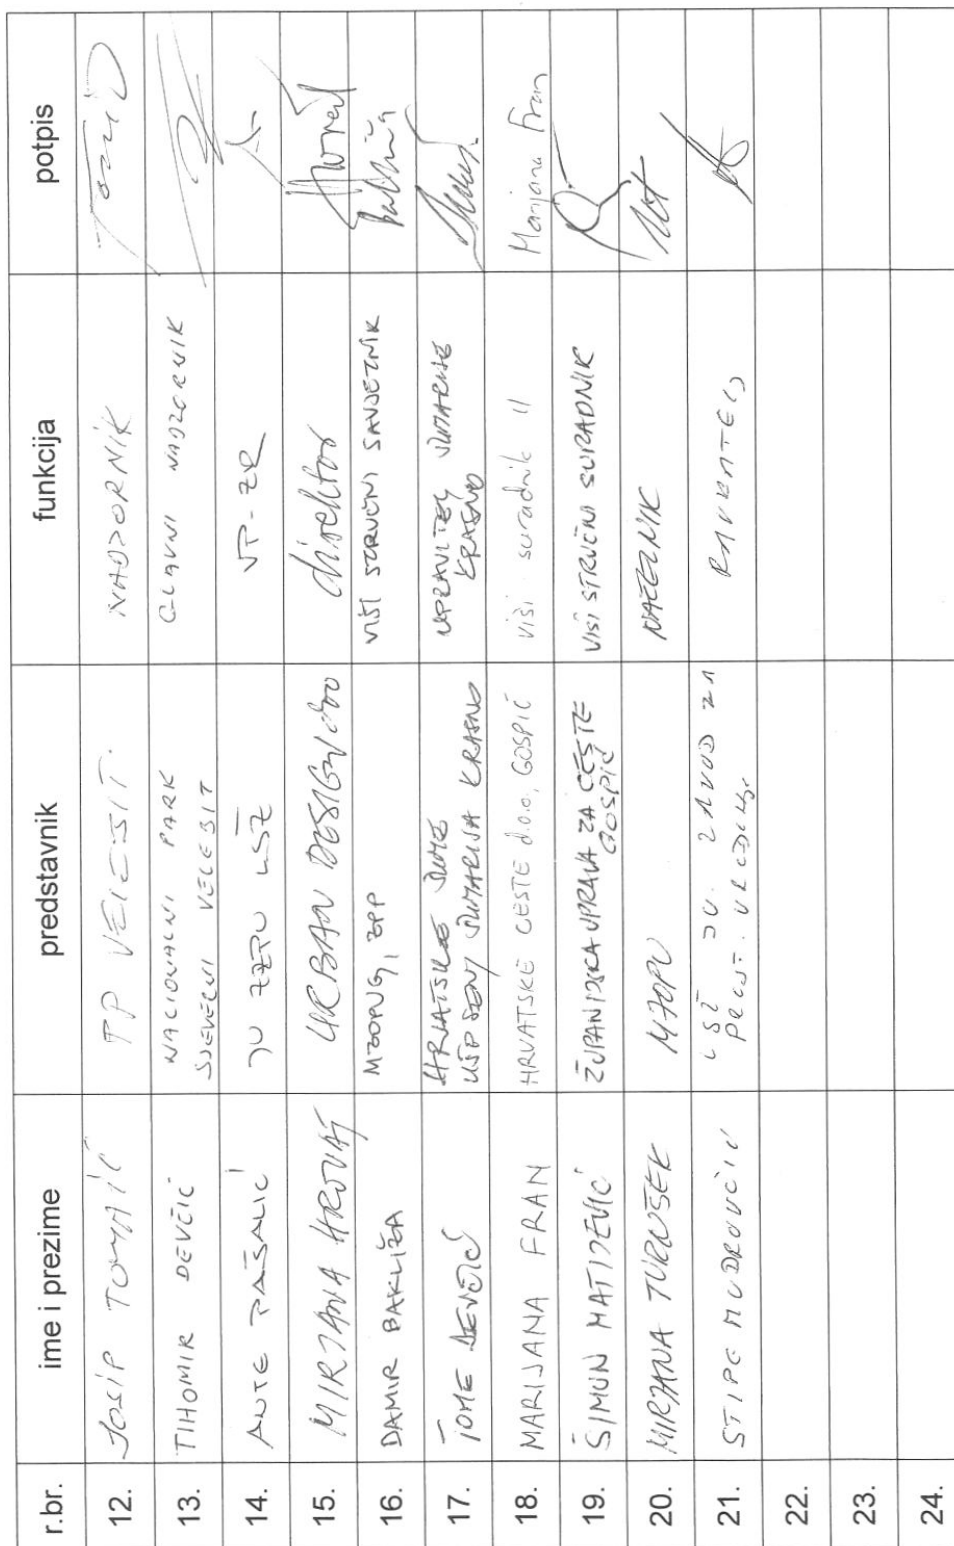 r.br. ime i prezime predstavnik funkcija potpis
12. JOSIP TOMAIĆ TP VELEBIT NADZORNIK
13. TIHOMIR DEVČIĆ NACIONALNI PARK GLAVNI NADZORNIK
SJEVERNI VELEBIT
14. ANTE PAŠALIĆ JU ZZPU LSŽ
15. MIRJANA HROVAT URBAN DESIGN doo direktor
16. DAMIR BAKLIŽA VIŠI STRUČNI SAVJETNIK
17. TOME DEVČIĆ HRVATSKE ŠUME UPRAVITELJ ŠUMARIJE
UŠP SENJ ŠUMARIJA KRASNO KRASNO
18. MARIJANA FRAN HRVATSKE CESTE d.o.o. GOSPIĆ viši suradnik II Marijana Fran
19. ŠIMUN MATIJEVIĆ ŽUPANIJSKA UPRAVA ZA CESTE VIŠI STRUČNI SURADNIK
GOSPIĆ
20. MIRJANA TURNŠEK NAČELNIK
21. STIPE MUDROVČIĆ LSŽ JU ZAVOD ZA RAVNATELJ
22.
23.
24.